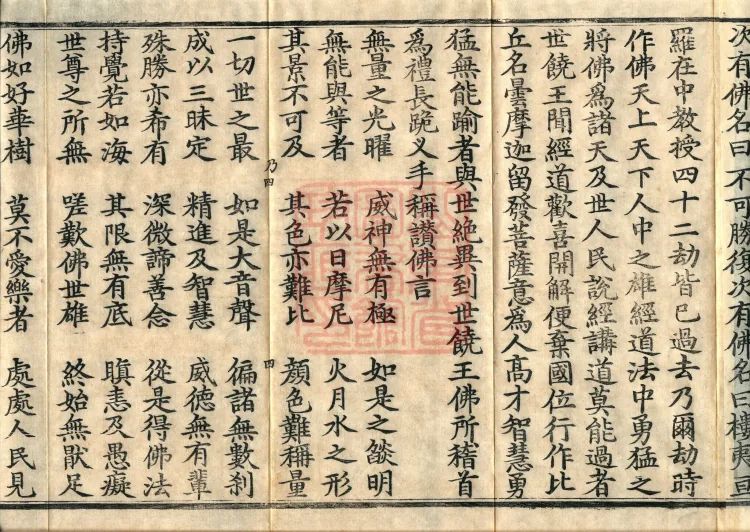 次有佛名曰不可勝復次有佛名曰樓夷亘
羅在中教授四十二劫皆已過去乃爾劫時
作佛天上天下人中之雄經道法中勇猛之
將佛爲諸天及世人民說經講道莫能過者
世饒王聞經道歡喜開解便棄國位行作比
丘名曇摩迦留發菩薩意爲人高才智慧勇
猛無能踰者與世絶異到世饒王佛所稽首
爲禮長跪叉手稱讃佛言
無量之光曜 威神無有極 如是之燄明
無能與等者 若以日摩尼 火月水之形
其景不可及 其色亦難比 顔色難稱量
乃四 四
一切世之最 如是大音聲 徧諸無數刹
成以三昧定 精進及智慧 威德無有輩
殊勝亦希有 深微諦善念 從是得佛法
持覺若如海 其限無有底 瞋恚及愚癡
世尊之所無 嗟歎佛世雄 終始無猒足
佛如好華樹 莫不愛樂者 處處人民見